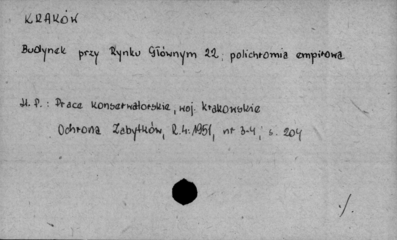 KRAKÓW
Budynek przy Rynku Głównym 22: polichromia empirowa
H. P.: Prace konserwatorskie, woj. krakowskie
Ochrona Zabytków, R. 4: 1951, nr 3-4, s. 204